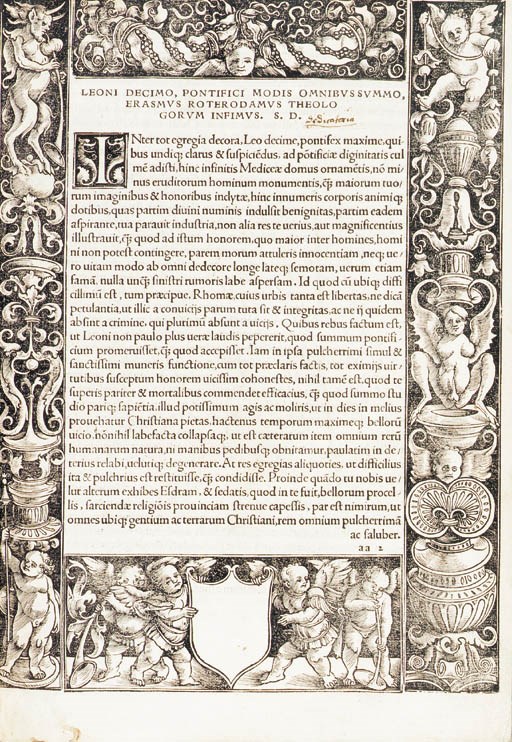 LEONI DECIMO, PONTIFICI MODIS OMNIBVS SVMMO,
ERASMVS ROTERODAMVS THEOLO
GORVM INFIMVS. S. D.
INter tot egregia decora, Leo decime, pontifex maxime, qui
bus undiq; clarus & suspiciēdus, ad pōtificiæ diginitatis cul
mē adisti, hinc infinitis Mediceæ domus ornamētis, nō mi
nus eruditorum hominum monumentis, q̄ maiorum tuo/
rum imaginibus & honoribus indytæ, hinc innumeris corporis animiq;
dotibus, quas partim diuini numinis indulsit benignitas, partim eadem
aspirante, tua parauit industria, non alia res te uerius, aut magnificentius
illustrauit, q̄ quod ad istum honorem, quo maior inter homines, homi
ni non potest contingere, parem morum attuleris innocentiam, neq; ue/
ro uitam modo ab omni dedecore longe lateq; semotam, uerum etiam
famā, nulla unq̄ sinistri rumoris labe aspersam. Id quod cū ubiq; diffi
cillimū est, tum præcipue. Rhomæ, cuius urbis tanta est libertas, ne dicā
petulantia, ut illic a conuicijs parum tuta sit & integritas, ac ne ij quidem
absint a crimine, qui plurimū absunt a uicijs. Quibus rebus factum est,
ut Leoni non paulo plus ueræ laudis pepererit, quod summum pontifi/
cium promeruisset, q̄ quod accepisset. Iam in ipsa pulcherrimi simul &
sanctissimi muneris functione, cum tot præclaris factis, tot eximijs uir/
tutibus susceptum honorem uicissim cohonestes, nihil tamē est, quod te
superis pariter & mortalibus commendet efficacius, q̄ quod summo stu
dio pariq; sapiētia, illud potissimum agis ac moliris, ut in dies in melius
prouehatur Christiana pietas, hactenus temporum maximeq; bellorū
uicio, nōnihil labefacta collapsaq, ut est cæterarum item omnium rerū
humanarum natura, ni manibus pedibusq; obnitamur, paulatim in de/
terius relabi, uelutiq; degenerare. At res egregias aliquoties, ut difficilius
ita & pulchrius est restituisse, q̄ condidisse. Proinde quādo tu nobis ue/
lut alterum exhibes Esdram, & sedatis, quod in te fuit, bellorum procel
lis, sarciendæ religiōis prouinciam strenue capessis, par est nimirum, ut
omnes ubiq; gentium ac terrarum Christiani, rem omnium pulcherrimā
ac saluber.
aa 2